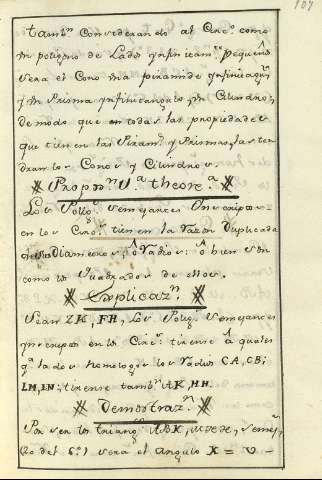 107
tambn. Considerando al Circ.o como
un poligono de Lados ynfinitam.te pequeños
sera el Cono una piramide ynfiniang.r
y un Prisma ynfinitangular, un Cilindro;
de modo que en todas las propiedades
que tienen las Piram.s y Prismas, las ten
dran los Conos y Cilindros.
Propos.n V.a theore.a
Los Polig.s semejantes Ynscriptos
en los Circ.s tienen la Razon Duplicada
Diametros; o Radios: o bien son
como los Quadrados de ellos.
Explicaz.n
Sean ZK, FH, Los Polig.s semejantes
ynscriptos en los Circ.s tirense a quales
q.a lados homologos los Radios CA, CB;
LM, LN; tirense tamb.n AK, HH.
Demostraz.n
Por ser los triang.s ABK,
del 6.o) sera el angulo K = V -